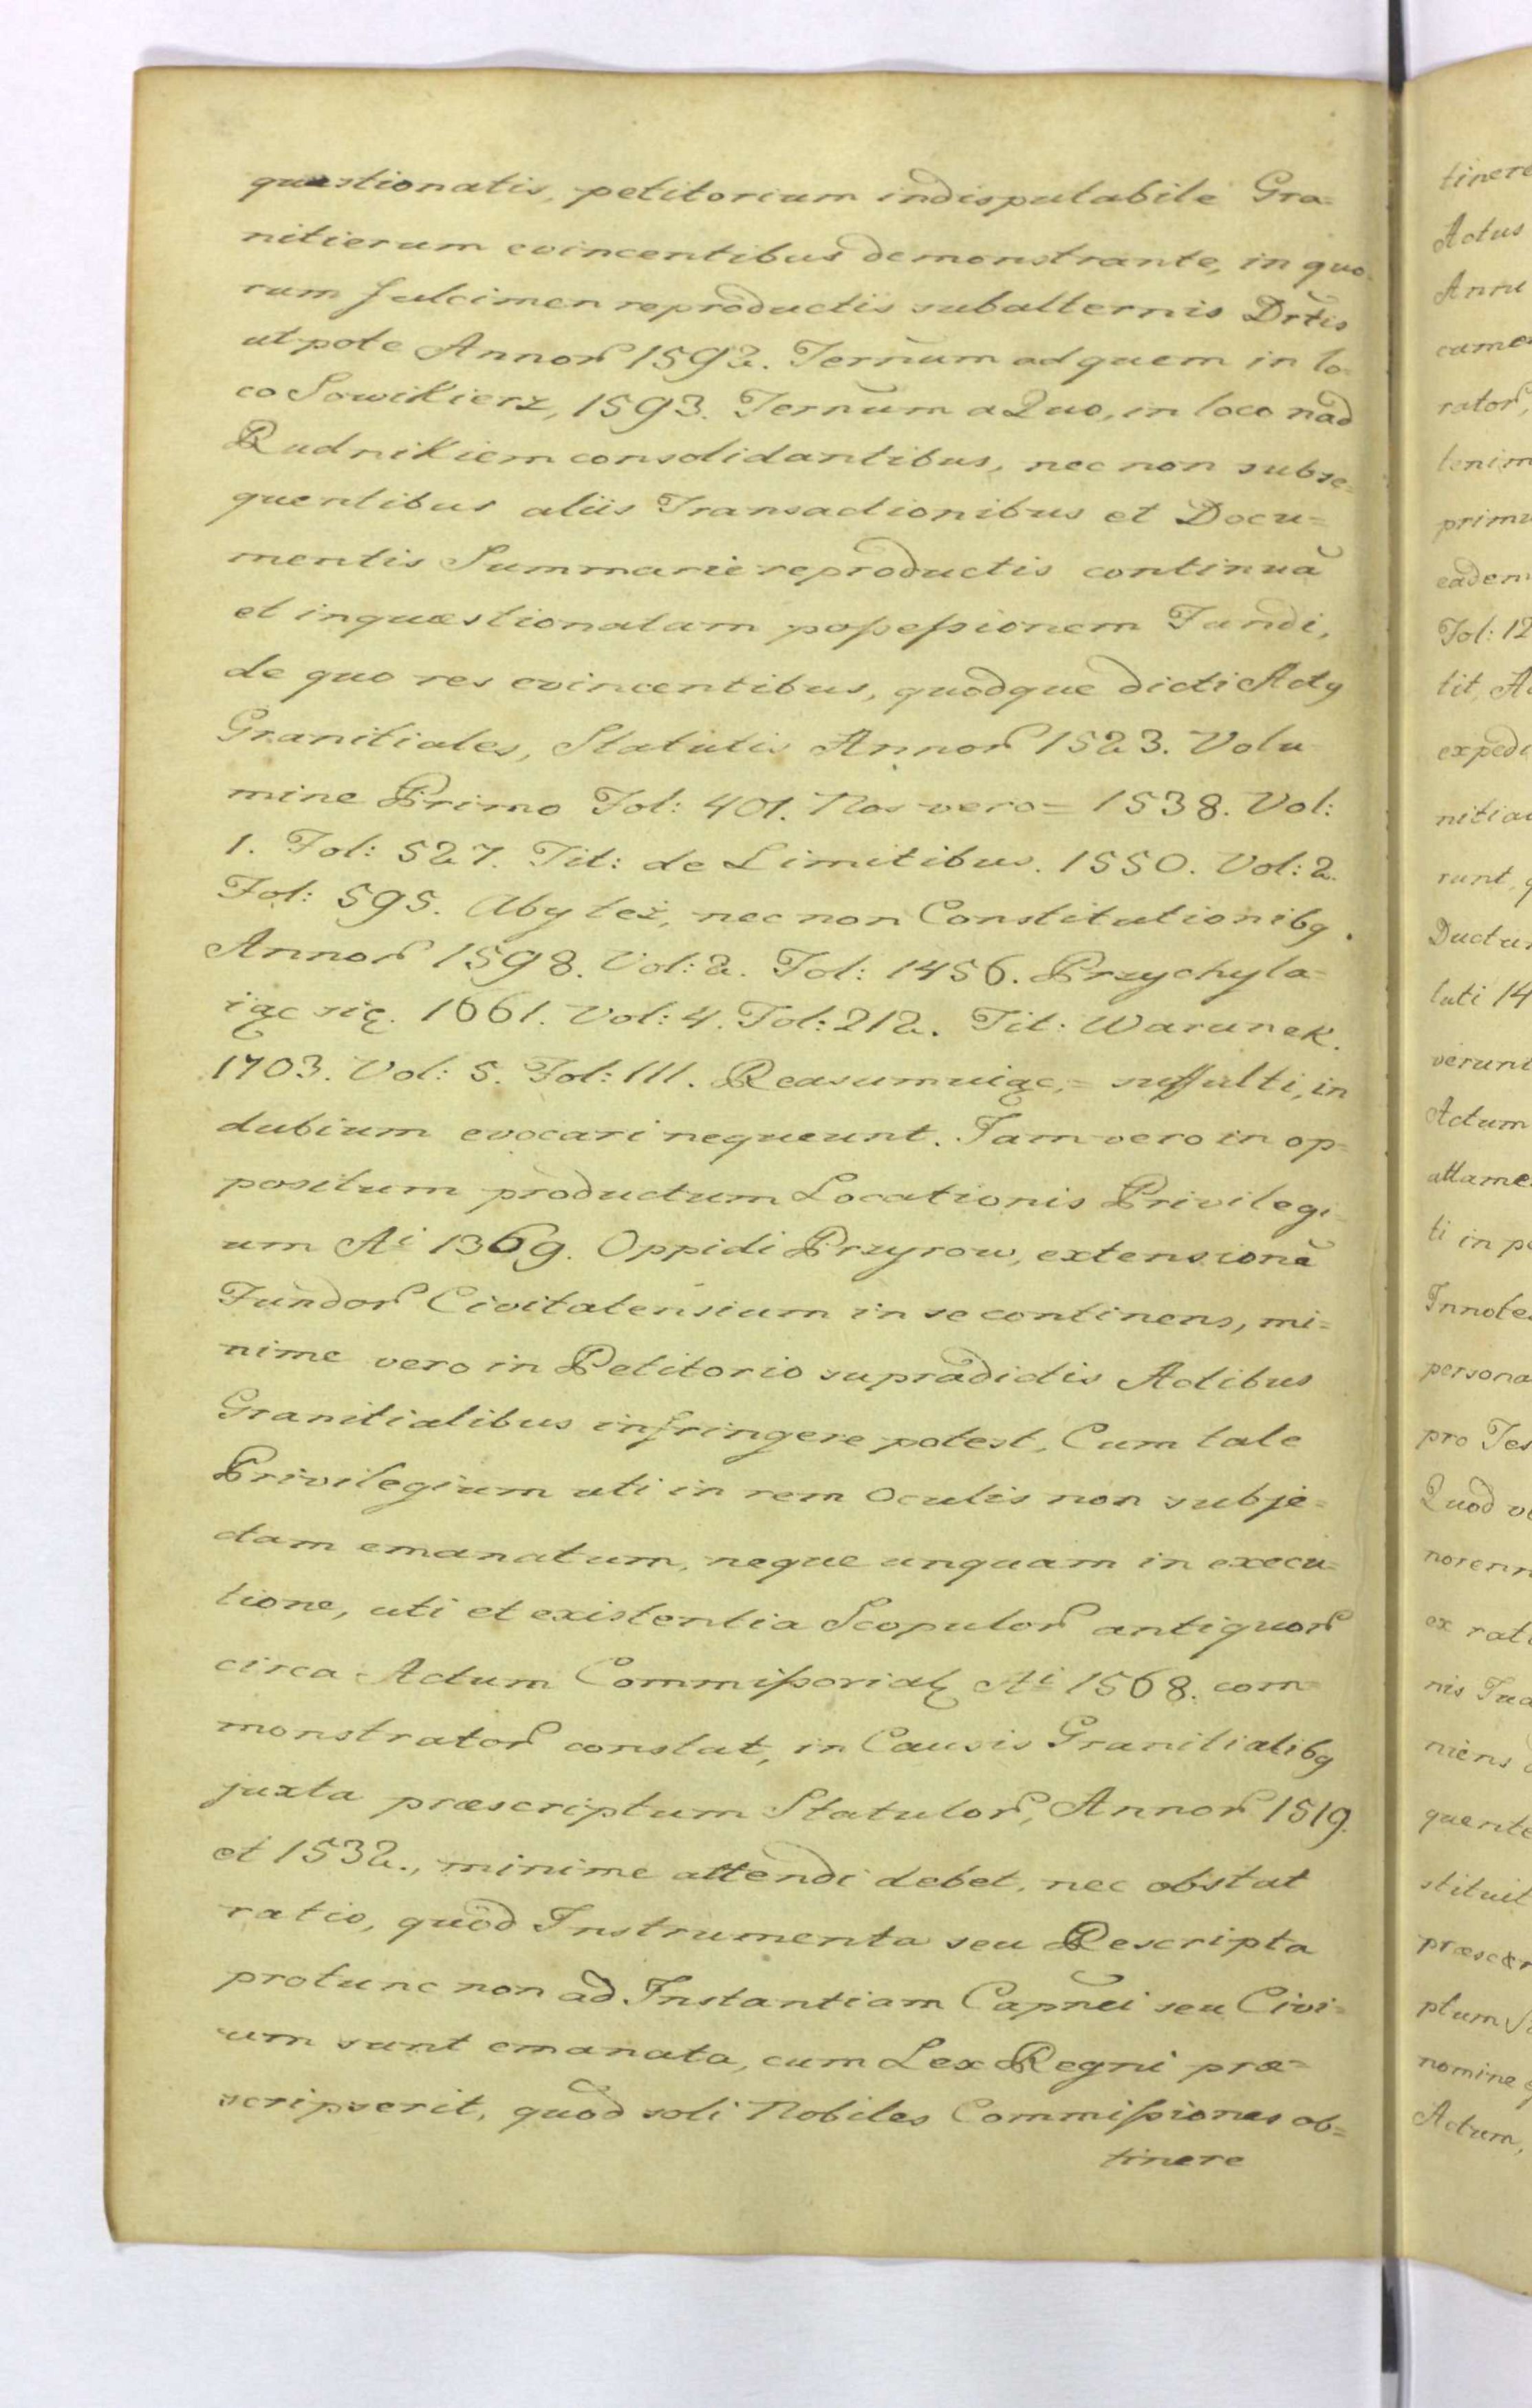 quæstionatis, petitorium indisputabile Gra=
nitierum evincentibus demonstrante, in quo=
rum fulcimen reproductis subalternis Drtis
utpote Annor 1592. Ternum ad quem in lo=
co Sowikierz, 1593. Ternum a Quo, in loco nad
Rudnikiem consolidantibus, nec non subse=
quentibus aliis Transactionibus et Docu=
mentis Summarie reproductis continuã
et inquæstionatam poſseſsionem Fundi,
de quo res evincentibus, quodque dicti Actq
Granitiales, Statutis Annor 1523. Volu=
mine Primo Fol: 401. Nos vero = 1538. Vol:
1. Fol: 527. Tit: de Limitibus. 1550. Vol: 2.
Fol: 595. Aby też, nec non Constitutionibq.
Annor 1598. Vol: 2. Fol: 1456. Przychyla=
iąc się. 1661. Vol: 4. Fol: 212. Tit: Warunek.
1703. Vol: 5. Fol: 111. Reasumuiąc, = suffulti, in
dubium evocari nequeunt. Jam vero in op=
positum productum Locationis Privilegi=
um Ai 1369. Oppidi Przyrow, extensionẽ
Fundor Civitatensium in se continens, mi=
nime vero in Petitorio supradictis Actibus
Granitialibus infringere potest, Cum tale
Privilegium uti in rem oculis non subje=
ctam emanatum, neque unquam in execu=
tione, uti et existentia Scopulor antiquor
circa Actum Commiſsorialę Ai 1568. com=
monstrator constat, in Causis Granitialibq
juxta præscriptum Statutor, Annor 1519.
et 1532., minime attendi debet, nec obstat
ratio, quod Instrumenta seu Rescripta
protunc non ad Instantiam Capnei seu Civi=
um sunt emanata, cum Lex Regni præ=
scripserit, quod soli Nobiles Commiſsiones ob=
tinere